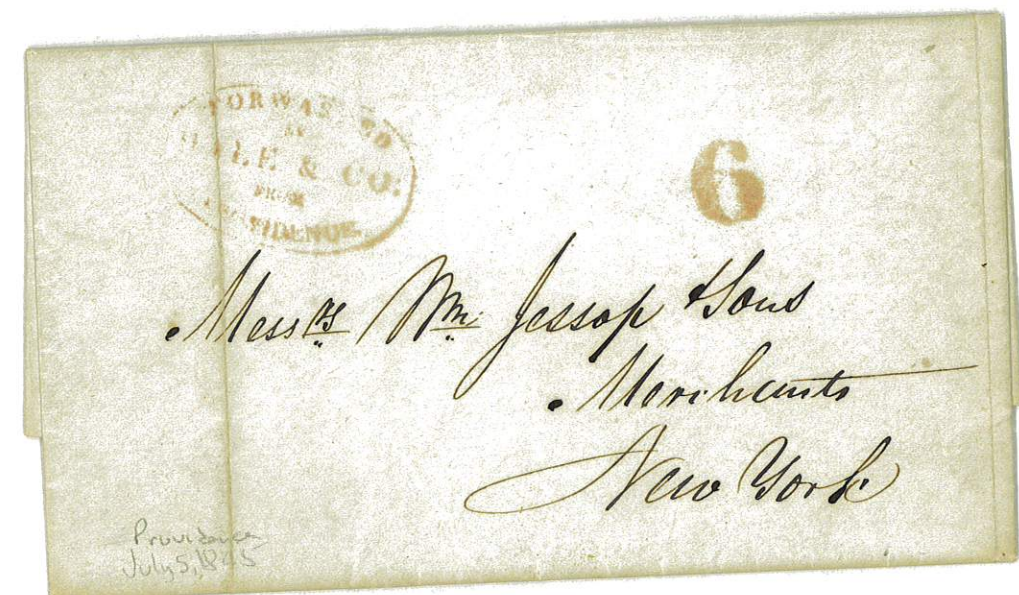 FORWARDED
BY
HALE & CO.
FROM
PROVIDENCE.
6
Messrs Wm. Jessop & Sons
Merchants
New York
Providence
July 5, 1845